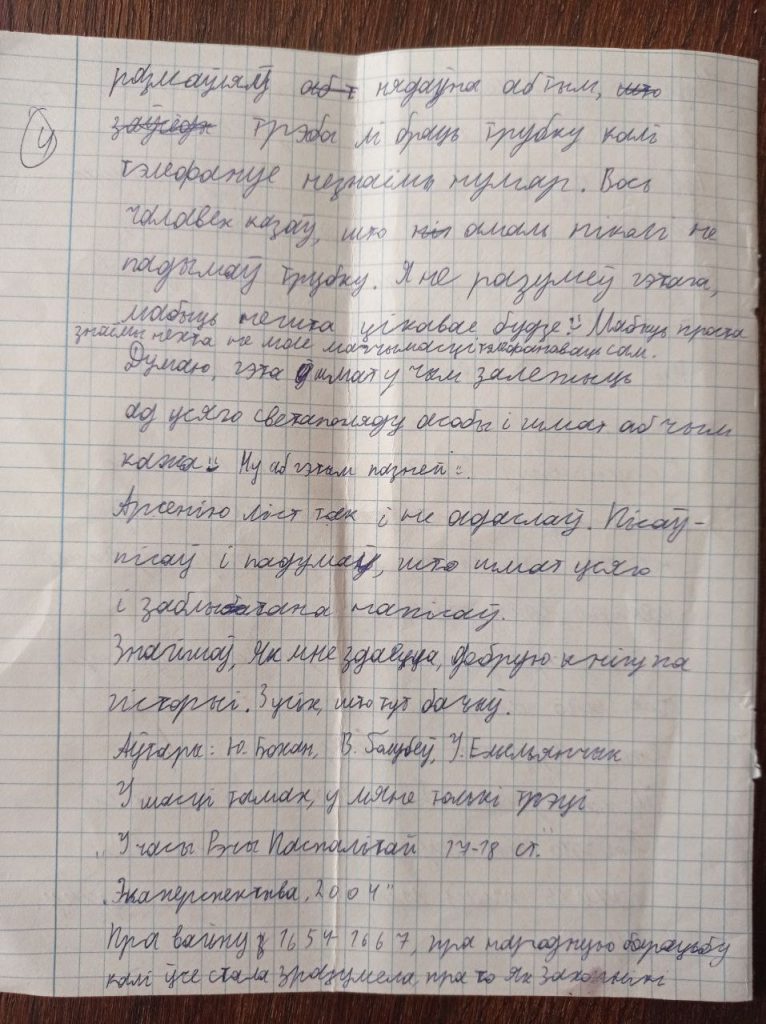 4
размаўляў аб т нядаўна аб тым, што
заўсёды трэба лі браць трубку калі
тэлефануе незнаёмы нумар. Вось
чалавек казаў, што ніл амаль ніколі не
падымаў трубку. Я не разумеў гэтага,
мабыць нешта цікавае будзе :) Мабыць проста
знаёмы нехта не мае магчымасці тэлефанаваць сам.
Думаю, гэта шмат у чым залежыць
ад усяго светапогляду асобы і шмат аб чым
кажа :) Ну аб гэтым пазней :).
Арсенію ліст так і не адаслаў. Пісаў-
пісаў і падумаў, што шмат усяго
і заблытана напісаў.
Знайшоў, як мне здаецца, добрую кнігу па
гісторыі. З усіх, што тут бачыў.
Аўтары: Ю. Бохан, В. Голубеў, У. Емельянчык
У шасці тамах, у мяне толькі трэці
"У часы Рэчы Паспалітай 17-18 ст."
"Экаперспектыва, 2004"
Пра вайну у 1654-1667, пра народную барацьбу
калі ўсе стала зразумела, пра то як захопнікі